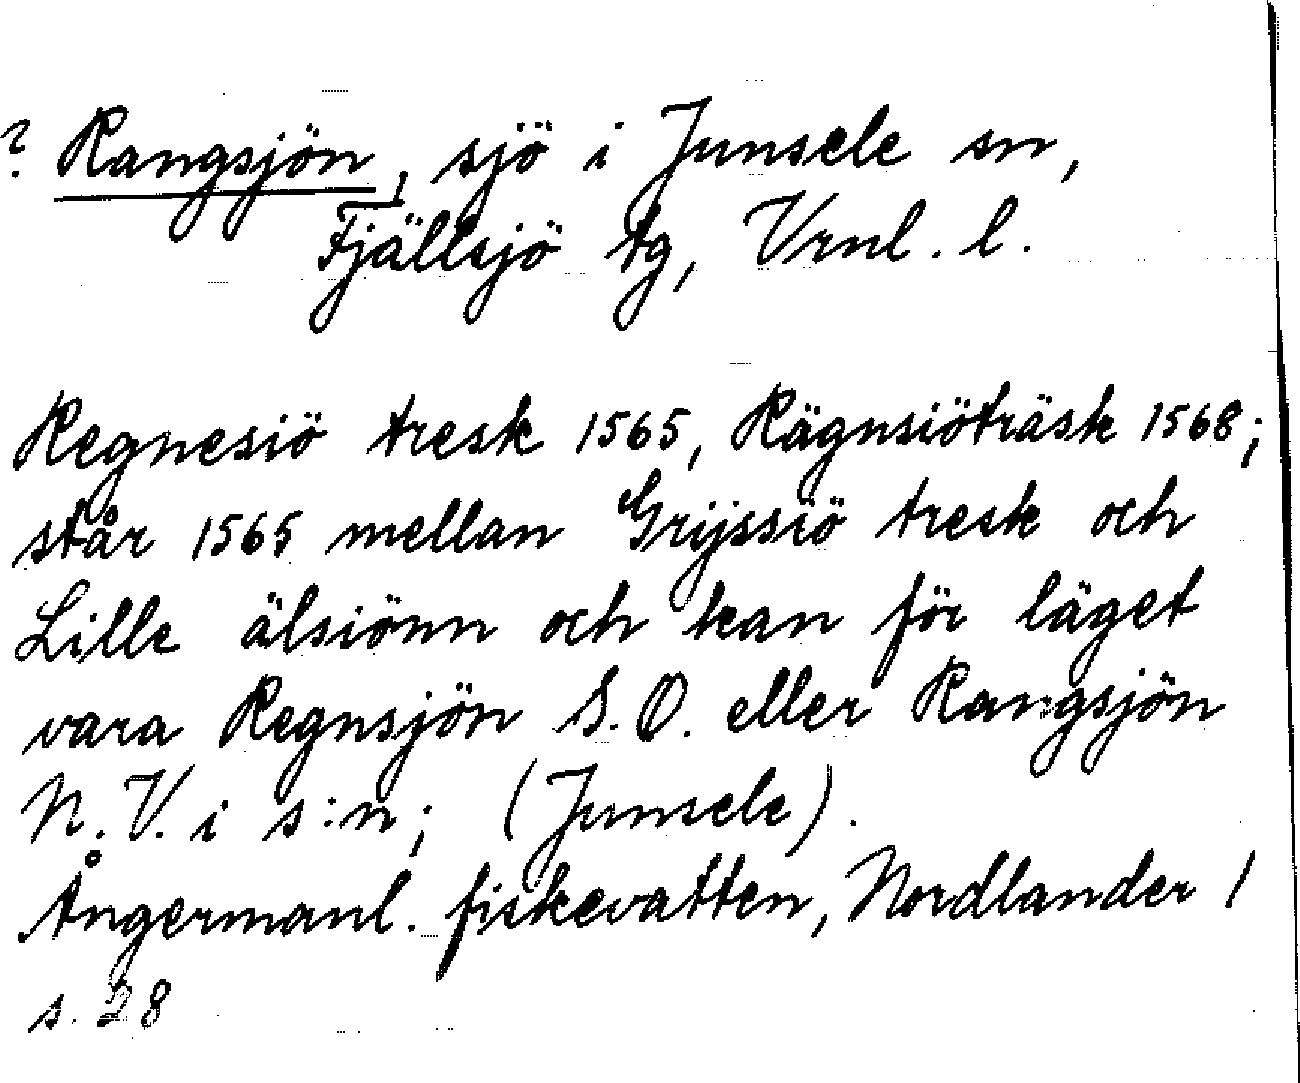 ? Rangsjön, sjö i Junsele sn,
Fjällsjö tg, Vrnl. l.
Regnesiö tresk 1565, Rägnsiöträsk 1568;
står 1565 mellan Grijssiö tresk och
Lille älsiönn och kan för läget
vara Regnsjön S.O. eller Rangsjön
N.V. i s:n; (Junsele).
Ångermanl. fiskevatten, Nordlander 1
s. 28